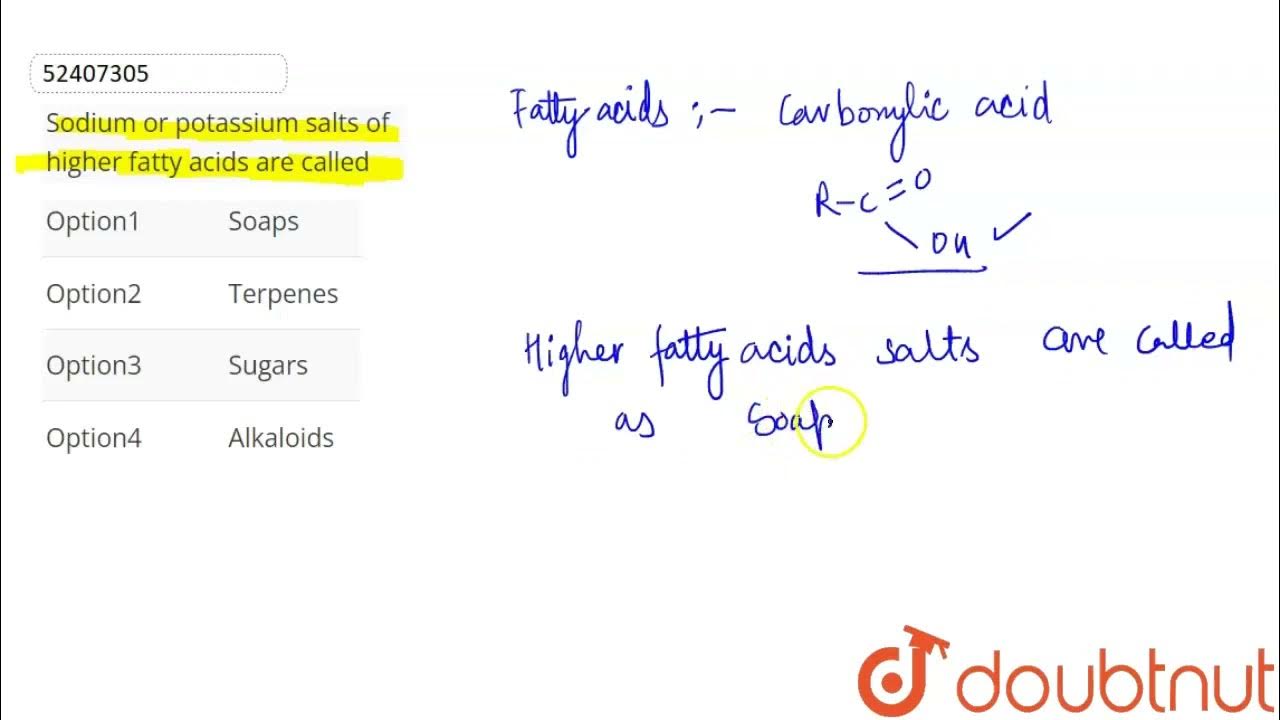 52407305
Sodium or potassium salts of
higher fatty acids are called
Option1 Soaps
Option2 Terpenes
Option3 Sugars
Option4 Alkaloids
Fatty acids ;- Carbonylic acid
R-C=O
OH
Higher fatty acids salts are called
as Soap
doubtnut